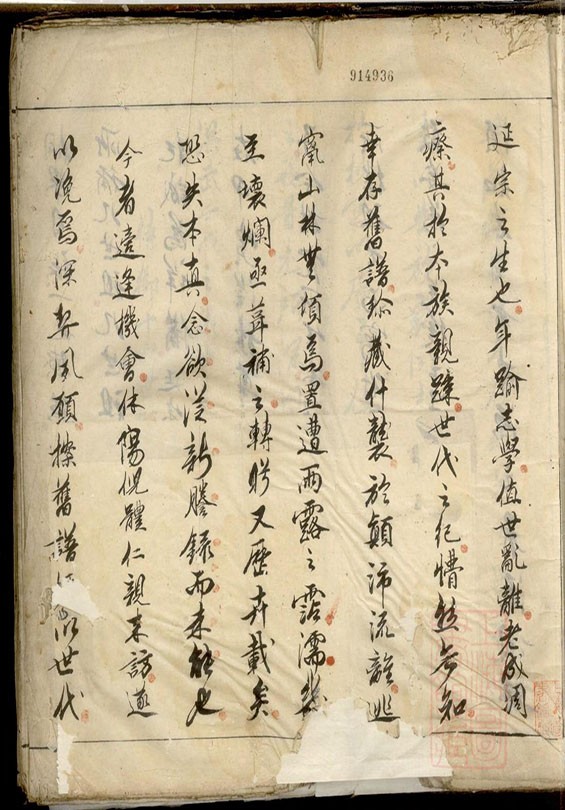 914936
延宗之生也年踰志學值世亂離老成凋
瘵其於本族親疎世代之紀懵然無知
幸存舊譜珍藏什襲於顛沛流離逃
竄山林無傾焉置遭雨露之霑濡幾
至壞爛亟葺補之轉盻又歷卉載矣
恐失本真念欲從新謄錄而未能也
今者遠逢機會休陽倪體仁親來訪
以浼焉深契夙願櫟舊譜 以世代